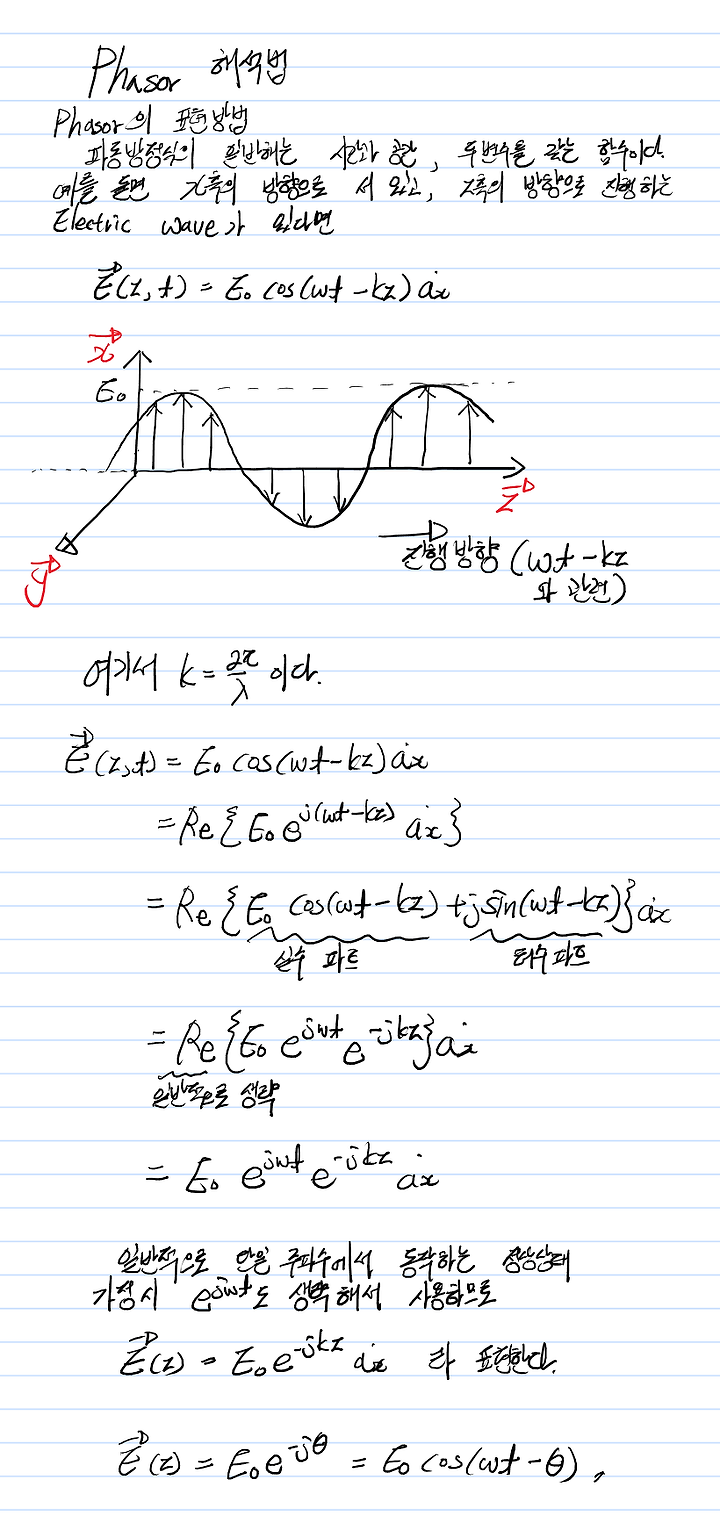 Phasor 해석법
Phasor의 표현방법
파동방정식의 일반해는 시간과 공간, 두변수를 갖는 함수이다.
예를 들면 x축의 방향으로 서 있고, z축의 방향으로 진행하는
Electric wave가 있다면
E⃗(z, t) = E₀ cos(wt - kz) ȧx
x⃗
E₀
z⃗
y⃗
진행방향 (wt - kz
와 관련)
여기서 k = 2π/λ 이다.
E⃗(z,t) = E₀ cos(wt - kz) ȧx
= Re{E₀ e^j(wt-kz) ȧx}
= Re{E₀ cos(wt - kz) + j sin(wt - kz)} ȧx
실수 파트 허수 파트
= Re{E₀ e^jwt e^-jkz} ȧx
일반적으로 생략
= E₀ e^jwt e^-jkz ȧx
일반적으로 단일 주파수에서 동작하는 정상상태
가정시 e^jwt도 생략해서 사용하므로
E⃗(z) = E₀ e^-jkz ȧx 라 표현한다.
E⃗(z) = E₀ e^-jθ = E₀ cos(wt - θ),